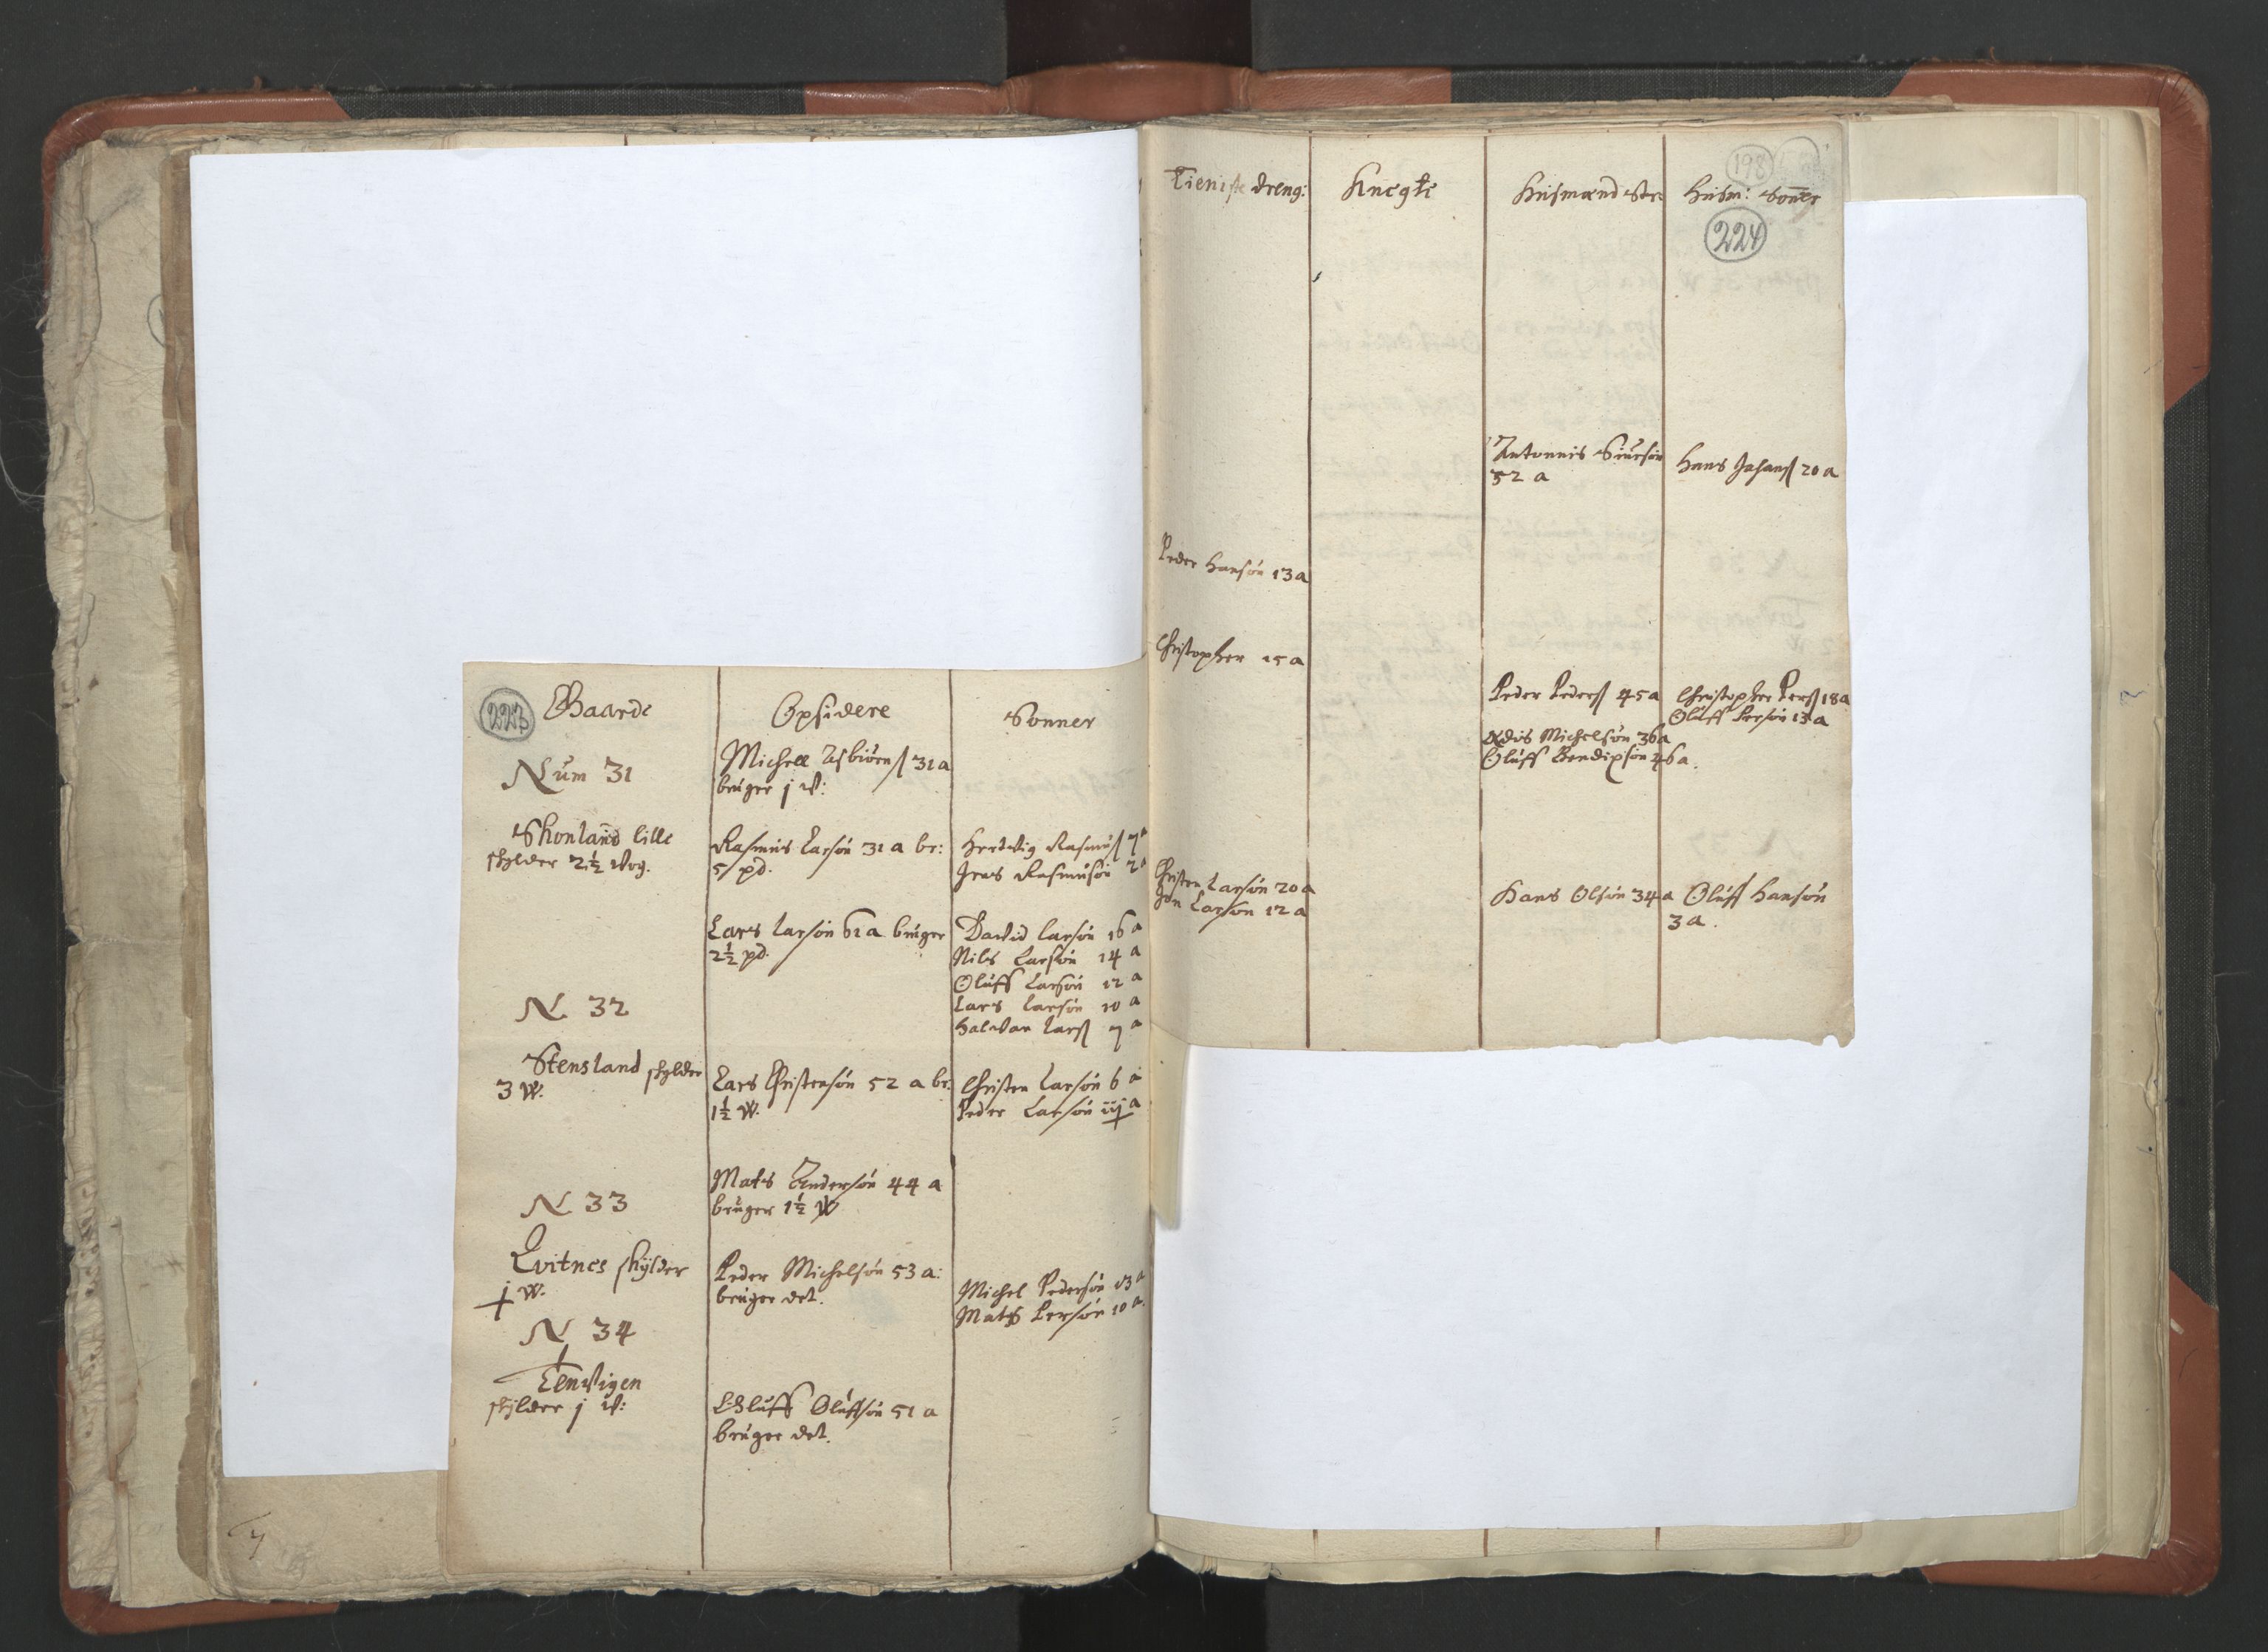 223
Gaarde
Opsidere
Sonner
Num 31
Michell Asbiörnß 31 a
bruger j W:
Skonland lille
skylder 2½ Wog.
Rasmus Larsön 31 a br:
5 pd.
Hertwig Rasmusß 7 a
Jens Rasmusön 2 a
Lars Larsön 61 a bruger
2½ pd.
David Larsön 16 a
Nils Larsön 14 a
Oluff Larsön 12 a
Lars Larsön 10 a
Halvor Larß 7 a
N 32
Stensland skylder
3 W.
Lars Christensön 52 a br:
1½ W.
Christen Larsön 6 a
Peder Larsön iij a
Mats Andersön 44 a
bruger 1½ W
N 33
Qvitnes skylder
j W.
Peder Michelsön 53 a:
bruger det.
Michel Pedersön 13 a
Mats Persön 10 a.
N 34
Tenvigen
skylder j W:
Oluff Oluffsön 51 a
bruger det.
4
Tieniste dreng:
Knegte
Husmænd
Husm: Sönner
198
224
Antonnis Siursön
52 a
Hans Johanß 20 a
Peder Hansön 13 a
Christopher 15 a
Peder Pedersß 45 a
Christopher Persß 18 a
Oluff Persön 13 a
Michelsön 36 a
Oluff Bendixsön 46 a.
Christen Larsön 20 a
Jon Larsön 12 a
Hans Olsön 34 a
Oluff Hansön
3 a.